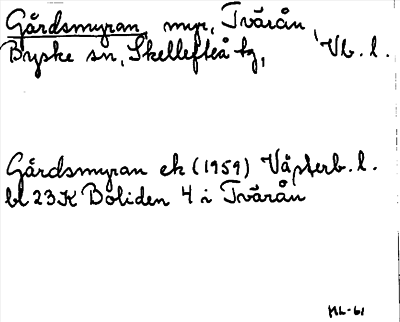 Gårdsmyran, myr, Tvärån,
Byske sn, Skellefteå tg, Vb. l.
Gårdsmyran ek (1959) Västerb. l.
bl 23K Boliden 4 i Tvärån
ML-61